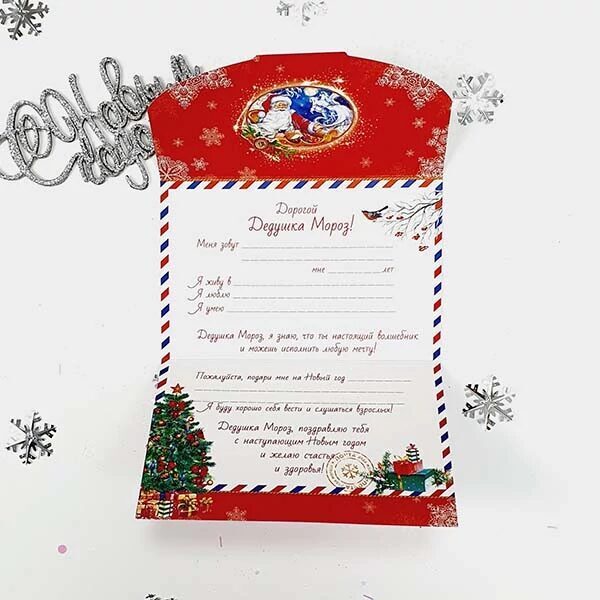 С Новым
годом
Дорогой
Дедушка Мороз!
Меня зовут
мне лет
Я живу в
Я люблю
Я умею
Дедушка Мороз, я знаю, что ты настоящий волшебник
и можешь исполнить любую мечту!
Пожалуйста, подари мне на Новый год
Я буду хорошо себя вести и слушаться взрослых!
Дедушка Мороз, поздравляю тебя
с наступающим Новым годом
и желаю счастья
и здоровья!